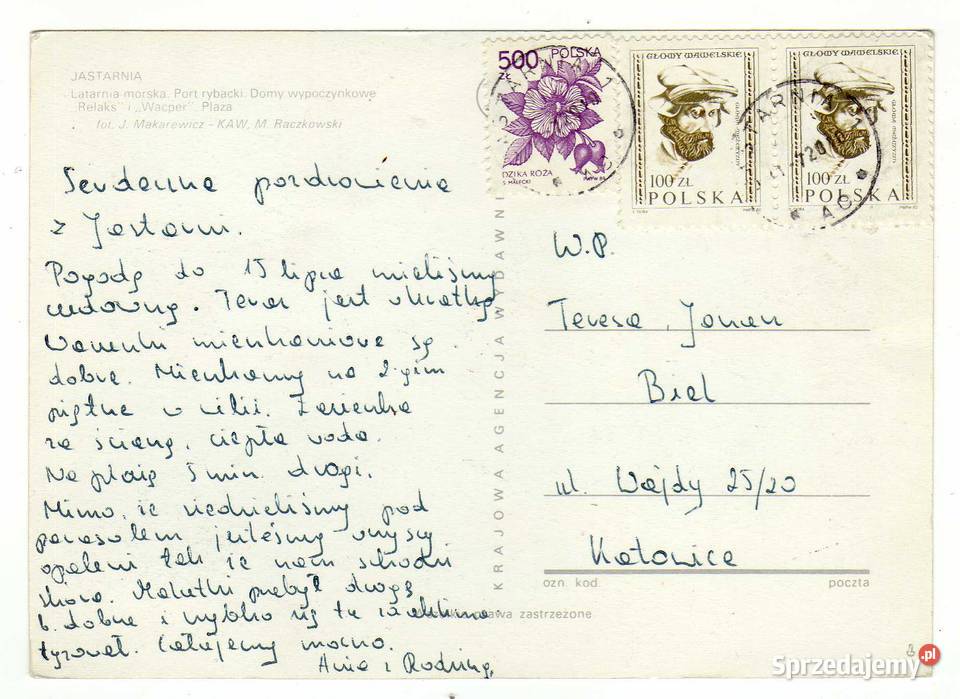 JASTARNIA
Latarnia morska. Port rybacki. Domy wypoczynkowe
„Relaks" i „Wacper". Plaża
fot. J. Makarewicz - KAW, M. Raczkowski
Serdeczne pozdrowienia
z Jastarni.
Pogodę do 15 lipca mieliśmy
cudowną. Teraz jest w kratkę
Warunki mieszkaniowe są
dobre. Mieszkamy na 2-gim
piętrze w willi. Łazienka
za ścianą, ciepła woda.
Na plażę 5 min. drogi.
Mimo, że siedzieliśmy pod
parasolem jesteśmy wszyscy
opaleni tak że nam schodzi
skóra. Malutki przebył drogę
b. dobrze i szybko się tu zaaklima-
tyzował. Całujemy mocno.
Ania z Rodziną
500 ZŁ
POLSKA
DZIKA RÓŻA
S. MAŁECKI
PWPW
GŁOWY WAWELSKIE
100 ZŁ
POLSKA
GŁOWY WAWELSKIE
100 ZŁ
POLSKA
JASTARNIA
KRAJOWA AGENCJA WYDAWNI
W.P.
Teresa, Jonan
Biel
ul. Wajdy 25/20
Katowice
ozn. kod.
poczta
prawa zastrzeżone
Sprzedajemy.pl